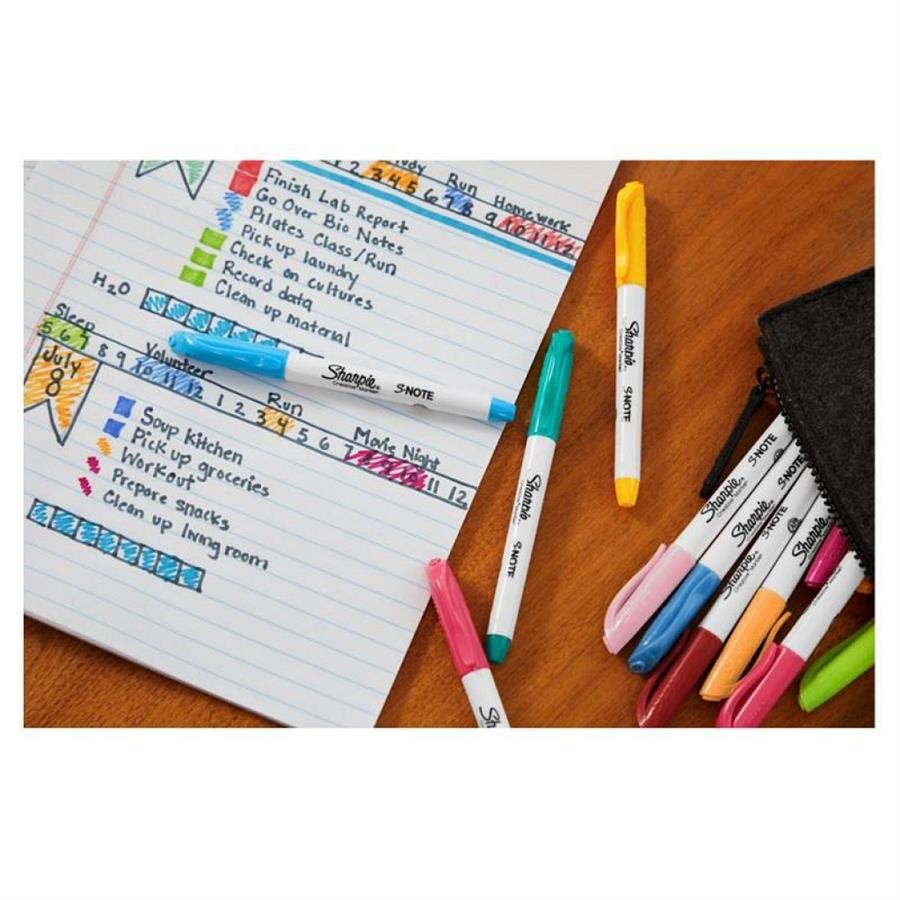 Run
Homework
2 3 4 5 6 7 8 9 10 11 12
Finish Lab Report
Go Over Bio Notes
Pilates Class/Run
Pick up laundry
Check on cultures
Record data
Clean up material
H2O
Sleep
Volunteer
Run
Movie Night
5 6 7 8 9 10 11 12 1 2 3 4 5 6 7 8 9 10 11 12
July
8
Soup Kitchen
Pick up groceries
Workout
Prepare snacks
Clean up living room
Sharpie
Creative Marker
S·NOTE
Sharpie
Creative Marker
S·NOTE
Sharpie
Creative Marker
S·NOTE
Sharpie
Creative Marker
S·NOTE
Sharpie
Creative Marker
S·NOTE
Sharpie
Creative Marker
S·NOTE
Sharpie
Creative Marker